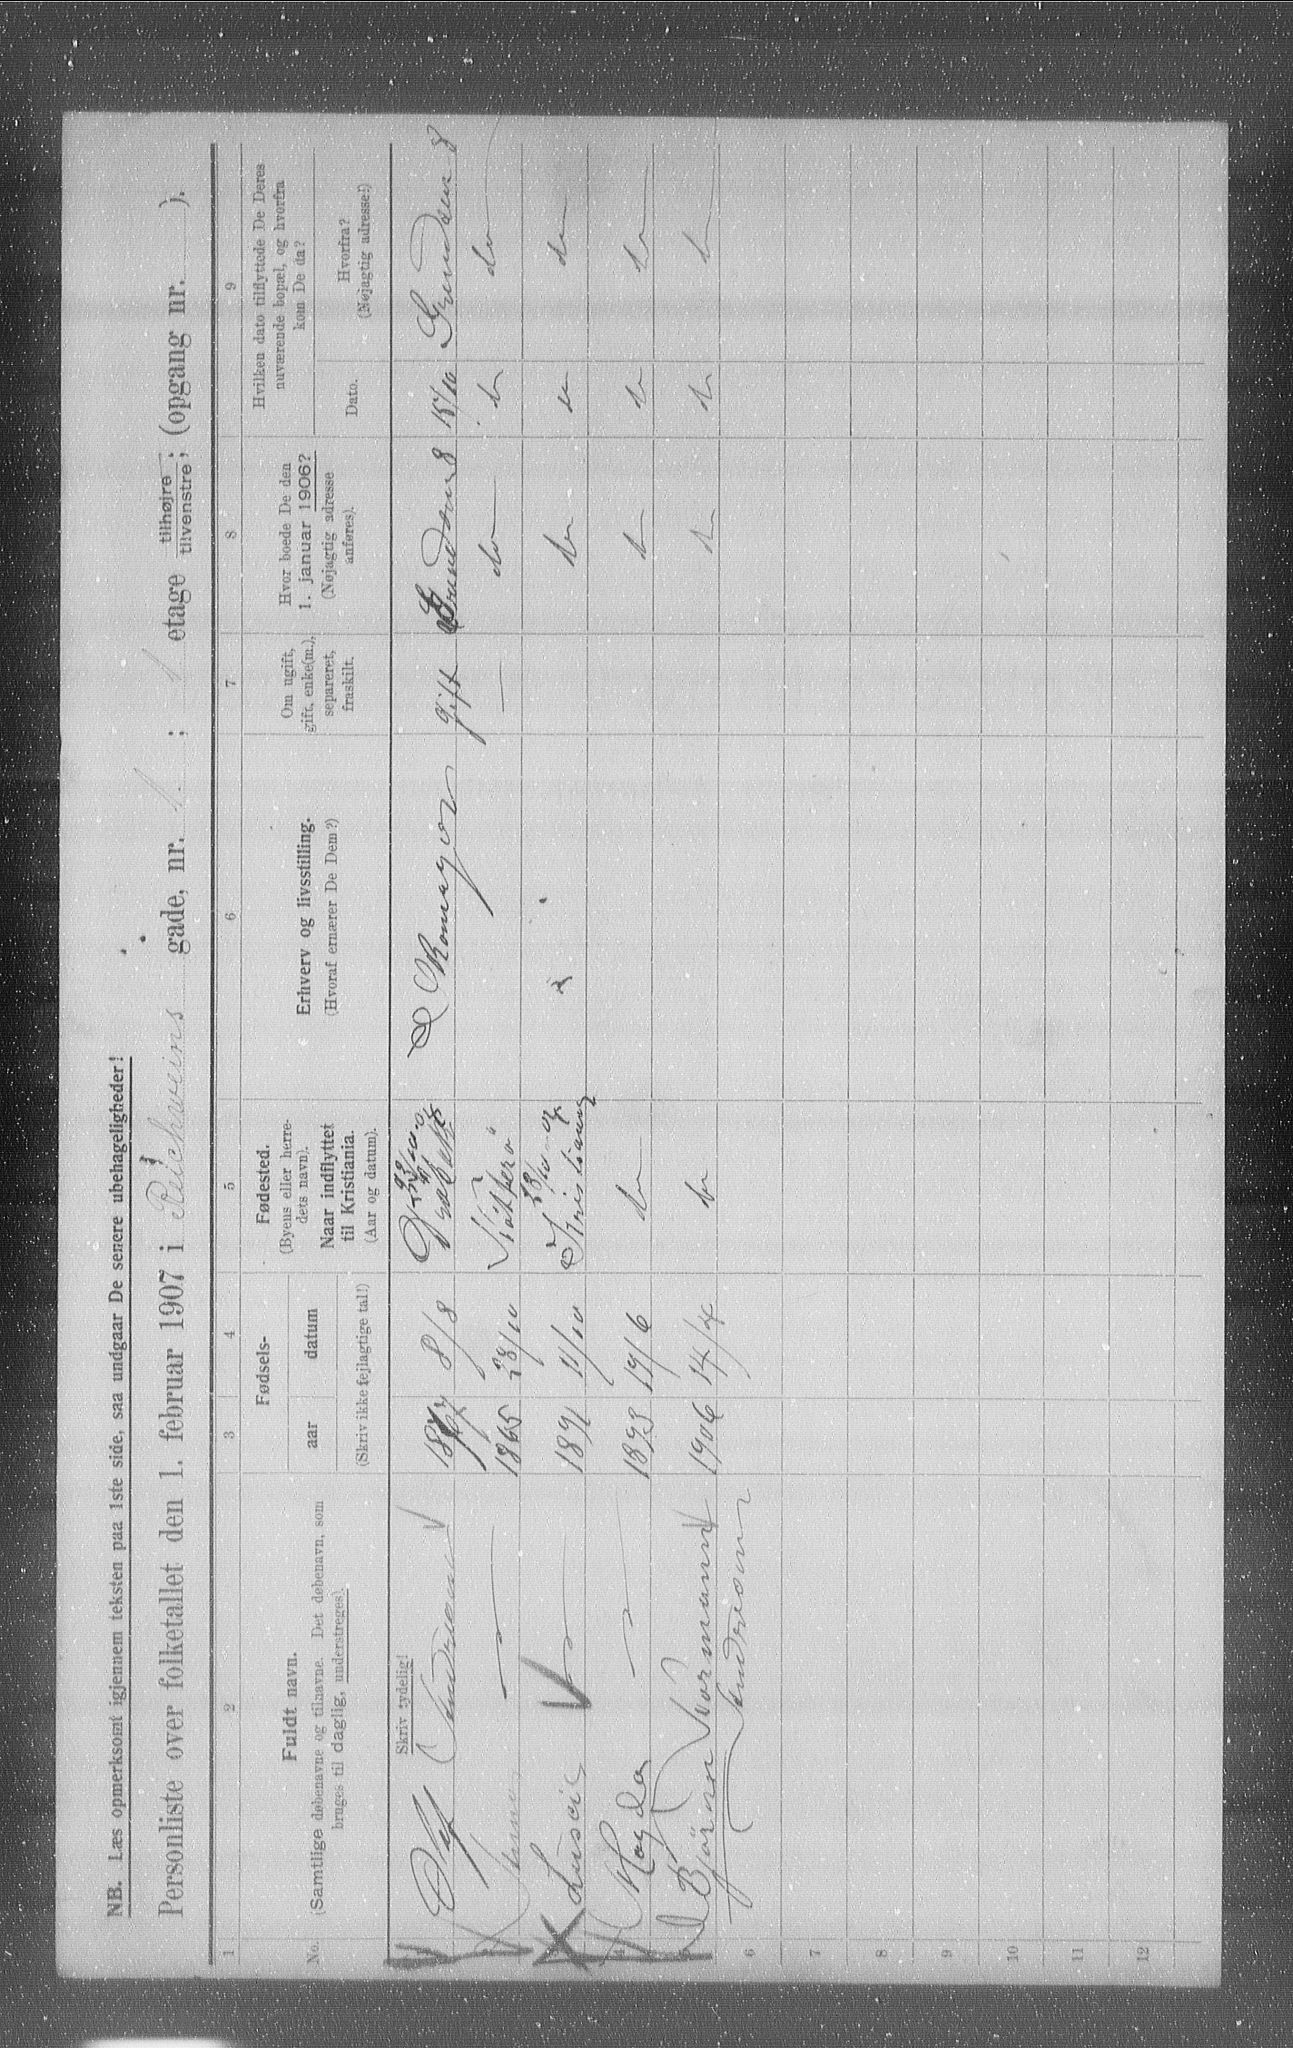 NB. Læs opmerksomt igjennem teksten paa 1ste side, saa undgaar De senere ubehageligheder!
Personliste over folketallet den 1. februar 1907 i Reichweins gade, nr. 1 ; 1 etage tilhøjre tilvenstre; (opgang nr. ).
1 2 3 4 5 6 7 8 9
No.
Fuldt navn.
(Samtlige døbenavne og tilnavne. Det døbenavn, som
bruges til daglig, understreges).
Fødsels-
aar datum
(Skriv ikke fejlagtige tal!)
Fødested.
(Byens eller herre-
dets navn).
Naar indflyttet
til Kristiania.
(Aar og datum).
Erhverv og livsstilling.
(Hvoraf ernærer De Dem?)
Om ugift,
gift, enke(m.),
separeret,
fraskilt.
Hvor boede De den
1. januar 1906?
(Nøjagtig adresse
anføres).
Hvilken dato tilflyttede De Deres
nuværende bopæl, og hvorfra
kom De da?
Dato.
Hvorfra?
(Nøjagtig adresse!)
Skriv tydelig!
Andreasen 8/8 Skomager gift 8 15/10 8
— 1865 28/10 — do — do do —
— 1891 11/10 Kristiania do — do do —
4 Magda — 1893 19/6 do — do — do do —
5 Bjørn Normann 1906 14/4 do do do do —
6 Andreasen
7
8
9
10
11
12